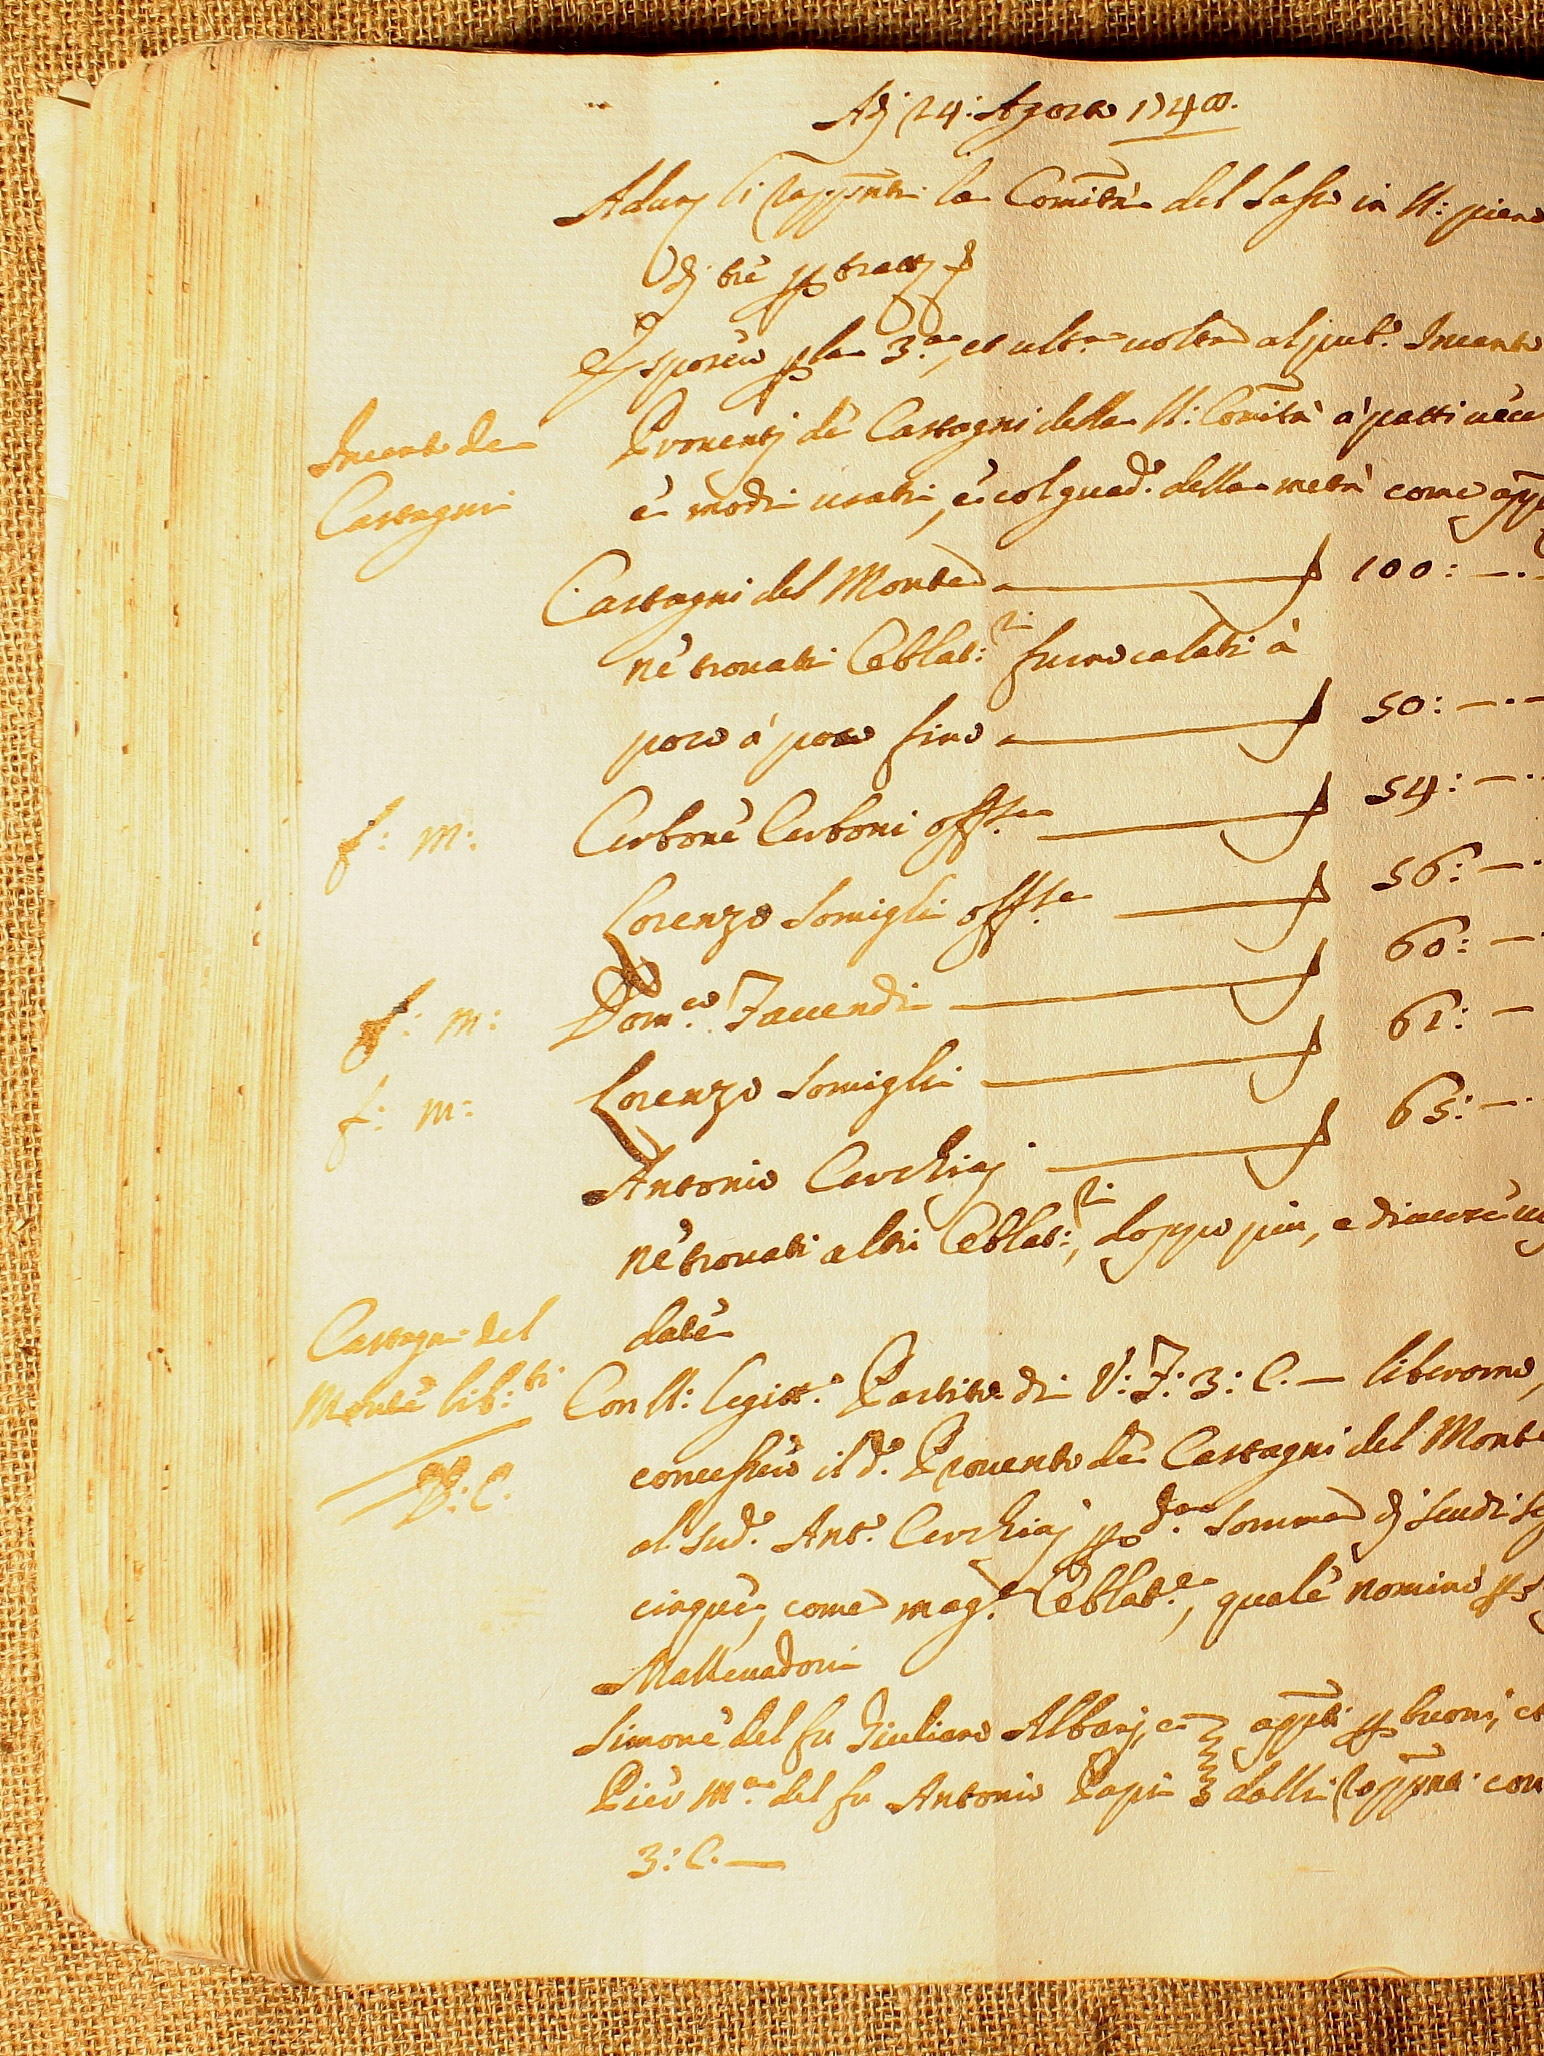 Adj 24: Agosto 1740.
Adunj li Rappñti la Comĩtà del Sasso in N: pieno
dj trè p trattj
Esposero p la 3.a, et ult.a volta al pub.o Incanto
Incanto de
Castagni
Proventj dè Castagni della N: Comĩtà à patti
è modi usati, è col quad.o della metà come
Castagni del Monte 100:
nè trovati Oblat:ri furno calati à
poco à poco fino 50:
f: m: Cerbone Cerboni offse 54:
Lorenzo Somigli offse 56:
f: m: Dom.co Faccendi 60:
f: m: Lorenzo Somigli 61:
Antonio Cerchiaj 65:
nè trovati altri Oblat:ri, doppo più, e diverse
date
Castagni del
Monte lib:ti
D: C.
Con N: legitt.o Partito di V: F: 3: C. — liberorno,
concessero il d.o Provento dè Castagni del Monte
al sud.o Ant.o Cerchiaj p d.a somma dj scudi
cinque, come mag.e Oblat.e, quale nominò p
Mallevadori
Simone del fu Giuliano Albanj, e appti p buoni, et
Pier M.a del fu Antonio Papi dalli Rappñti con
3: C. —